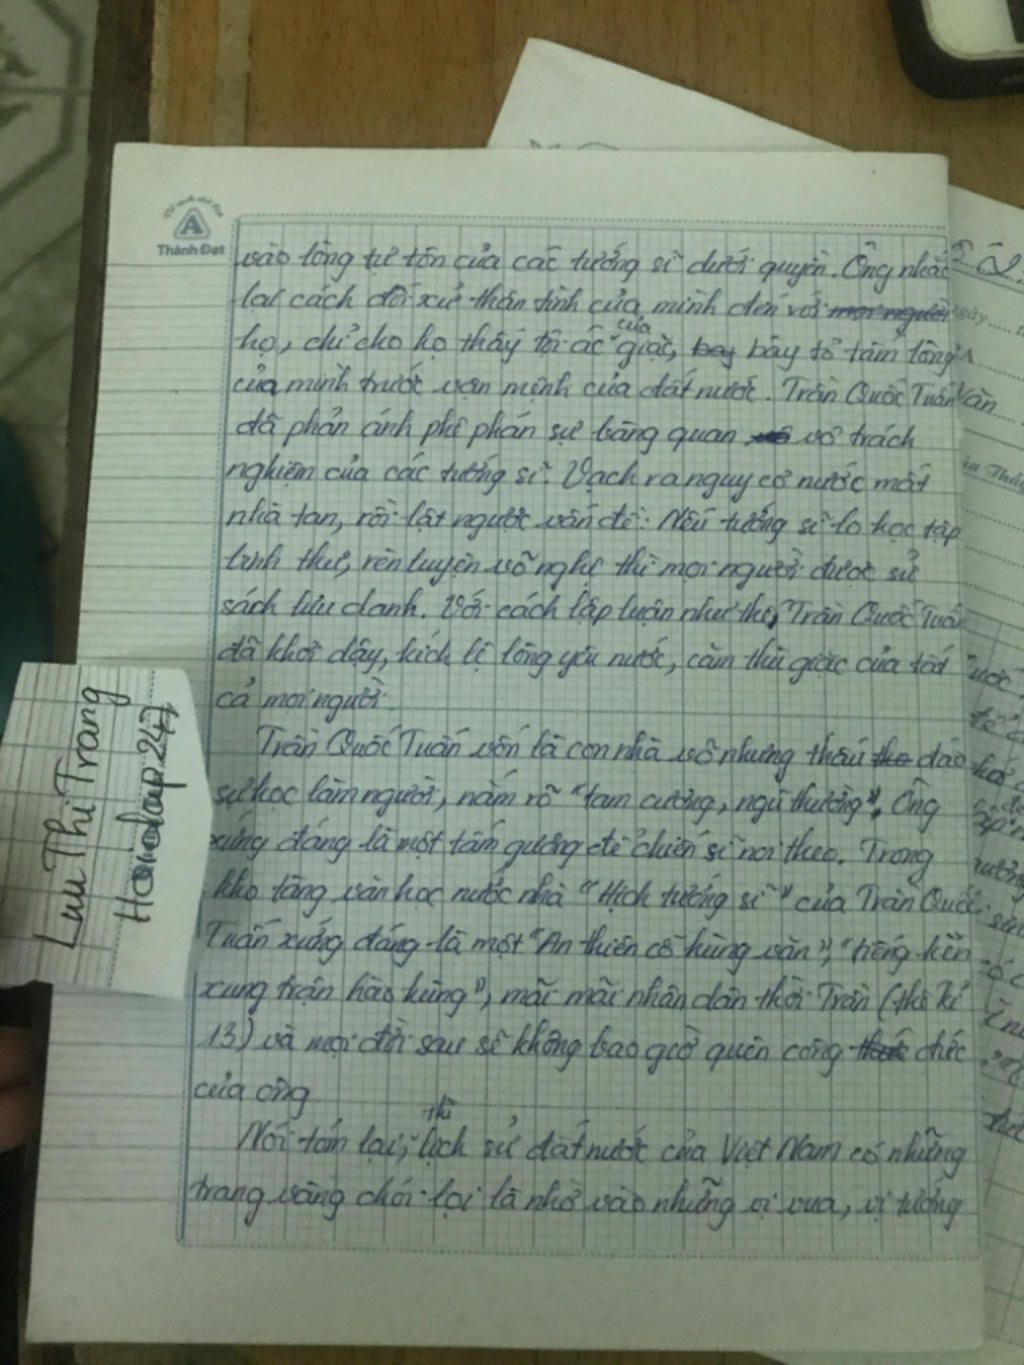 Thành Đạt
vào lòng tự tôn của các tướng sĩ dưới quyền. Ông nhắc
lại cách đối xử thân tình của mình đến với mọi người
họ, chỉ cho họ thấy tội ác của giặc, bay bày tỏ tấm lòng
của mình trước vận mệnh của đất nước. Trần Quốc Tuấn
đã phản ánh phê phán sự bàng quan vô trách
nghiệm của các tướng sĩ. Vạch ra nguy cơ nước mất
nhà tan, rồi lật ngược vấn đề: Nếu tướng sĩ lo học tập
binh thư, rèn luyện võ nghệ thì mọi người được sử
sách lưu danh. Với cách lập luận như thế, Trần Quốc Tuấn
đã khơi dậy, kích lệ lòng yêu nước, căm thù giặc của tất
cả mọi người.
Trần Quốc Tuấn vốn là con nhà võ nhưng thấu tho đáo
sự học làm người, nắm rõ "tam cương, ngũ thường". Ông
xứng đáng là một tấm gương để chiến sĩ noi theo. Trong
kho tàng văn học nước nhà "Hịch tướng sĩ" của Trần Quốc
Tuấn xứng đáng là một "Án thiên cổ hùng văn", "tiếng kèn
xung trận hào hùng", mãi mãi nhân dân thời Trần (thế kỉ
13) và mọi đời sau sẽ không bao giờ quên công đức
của ông
Nói tóm lại, thì lịch sử đất nước của Việt Nam có những
trang vàng chói lọi là nhờ vào những vị vua, vị tướng
Lưu Thị Trang
Hoidap247